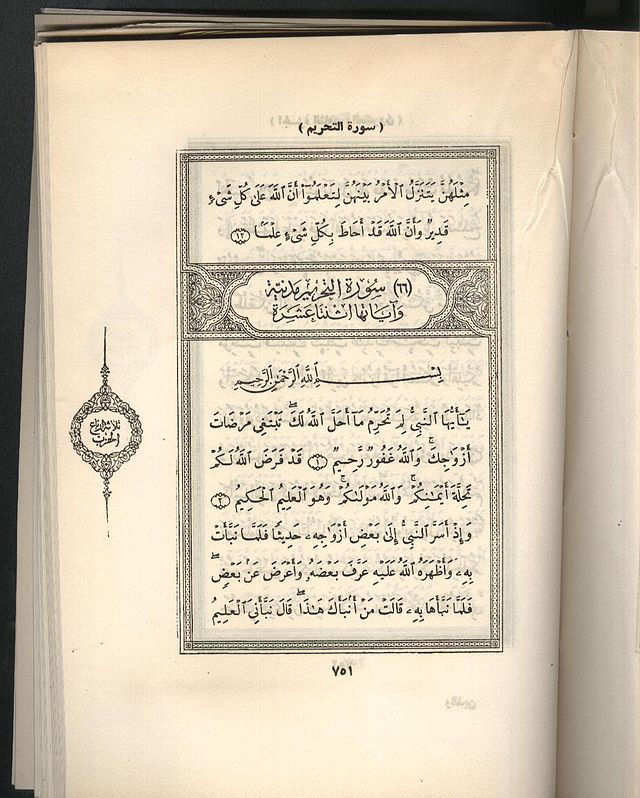 ( سورة التحريم )
مِثْلَهُنَّ يَتَنَزَّلُ ٱلْأَمْرُ بَيْنَهُنَّ لِتَعْلَمُوٓا۟ أَنَّ ٱللَّهَ عَلَىٰ كُلِّ شَىْءٍ
قَدِيرٌ وَأَنَّ ٱللَّهَ قَدْ أَحَاطَ بِكُلِّ شَىْءٍ عِلْمًۢا ﴿١٢﴾
(٦٦) سُورَة التحريم مدنيّة
وَآيَاتها اثنتا عَشَرَة
بِسْمِ ٱللَّهِ ٱلرَّحْمَٰنِ ٱلرَّحِيمِ
يَٰٓأَيُّهَا ٱلنَّبِىُّ لِمَ تُحَرِّمُ مَآ أَحَلَّ ٱللَّهُ لَكَ ۖ تَبْتَغِى مَرْضَاتَ
أَزْوَٰجِكَ ۚ وَٱللَّهُ غَفُورٌ رَّحِيمٌ ﴿١﴾ قَدْ فَرَضَ ٱللَّهُ لَكُمْ
تَحِلَّةَ أَيْمَٰنِكُمْ ۚ وَٱللَّهُ مَوْلَىٰكُمْ ۖ وَهُوَ ٱلْعَلِيمُ ٱلْحَكِيمُ ﴿٢﴾
وَإِذْ أَسَرَّ ٱلنَّبِىُّ إِلَىٰ بَعْضِ أَزْوَٰجِهِۦ حَدِيثًا فَلَمَّا نَبَّأَتْ
بِهِۦ وَأَظْهَرَهُ ٱللَّهُ عَلَيْهِ عَرَّفَ بَعْضَهُۥ وَأَعْرَضَ عَنۢ بَعْضٍ ۖ
فَلَمَّا نَبَّأَهَا بِهِۦ قَالَتْ مَنْ أَنۢبَأَكَ هَٰذَا ۖ قَالَ نَبَّأَنِىَ ٱلْعَلِيمُ
ثلاثة أرباع
الحزب
٧٥١